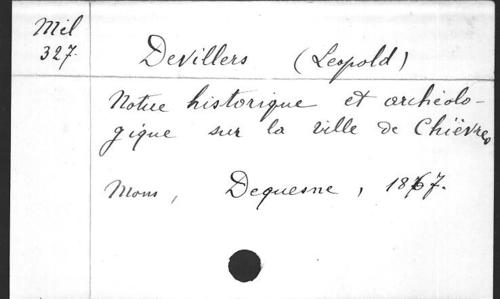 Mil
327.
Devillers (Leopold)
Notice historique et archéolo-
gique sur la ville de Chièvres
Mons, Dequesne, 1867.